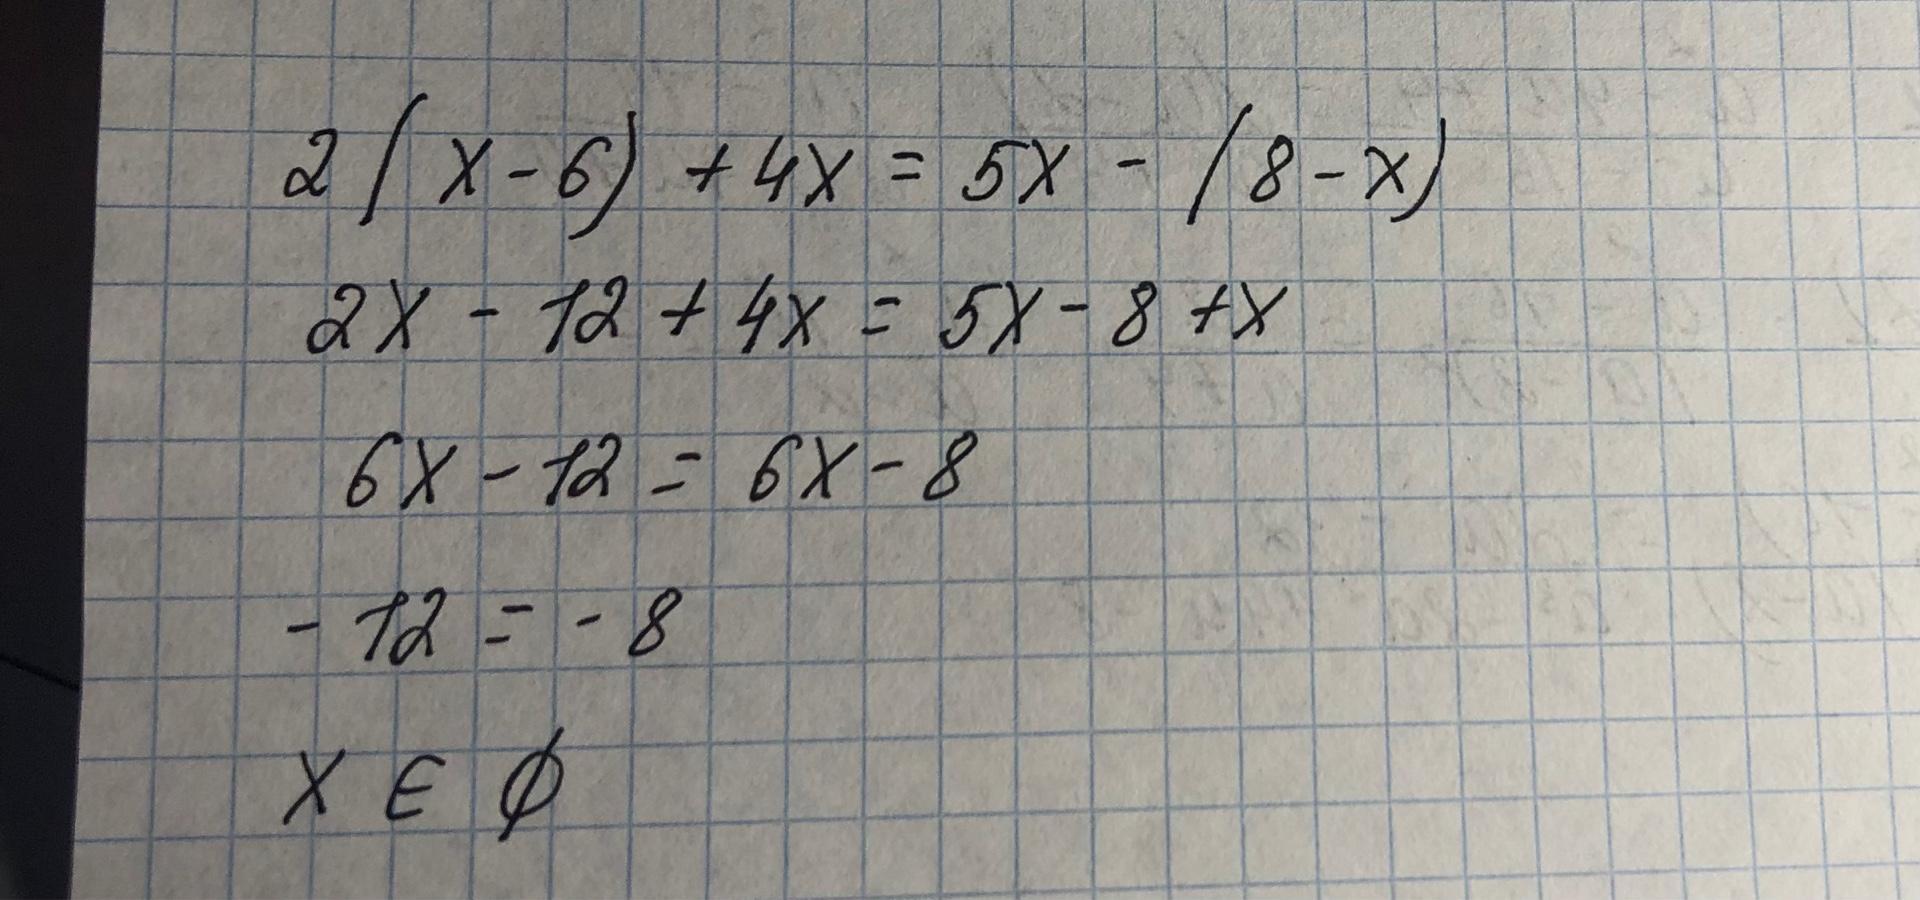 2(x-6)+4x=5x-(8-x)
2x-12+4x=5x-8+x
6x-12=6x-8
-12=-8
x∈∅